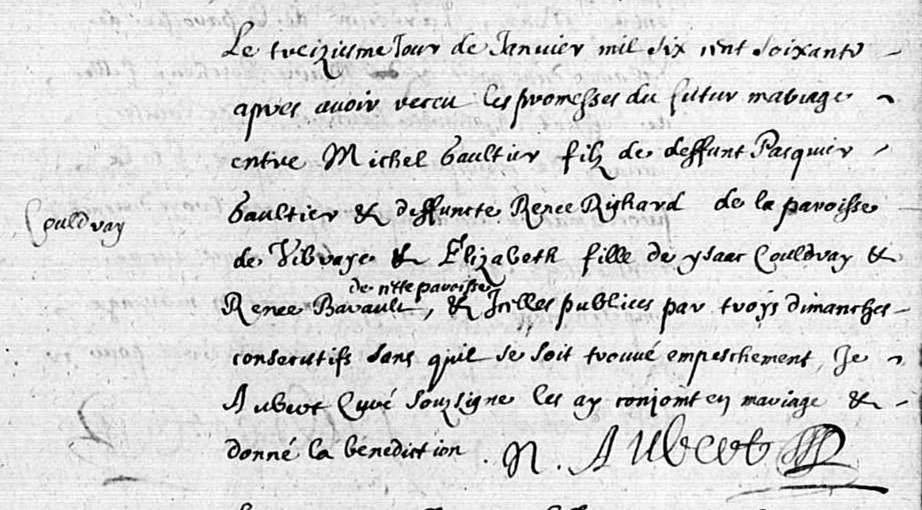 Le treiziesme Jour de Janvier mil six cent soixante
apres avoir receu les promesses du futur mariage
entre Michel Gaultier filz de deffunt Pasquier
Gaultier & deffuncte Renee Richard de la paroisse
Couldray
de Vibraye & Elizabeth fille de ysaac Couldray &
de cette paroisse
Renee Barault, & Icelles publiees par troys dimanches
consecutifs sans qu'il se soit trouvé empeschement, Je
Aubert Curé soubsigne les ay conjoint en mariage &
donné la benediction. N. Aubert